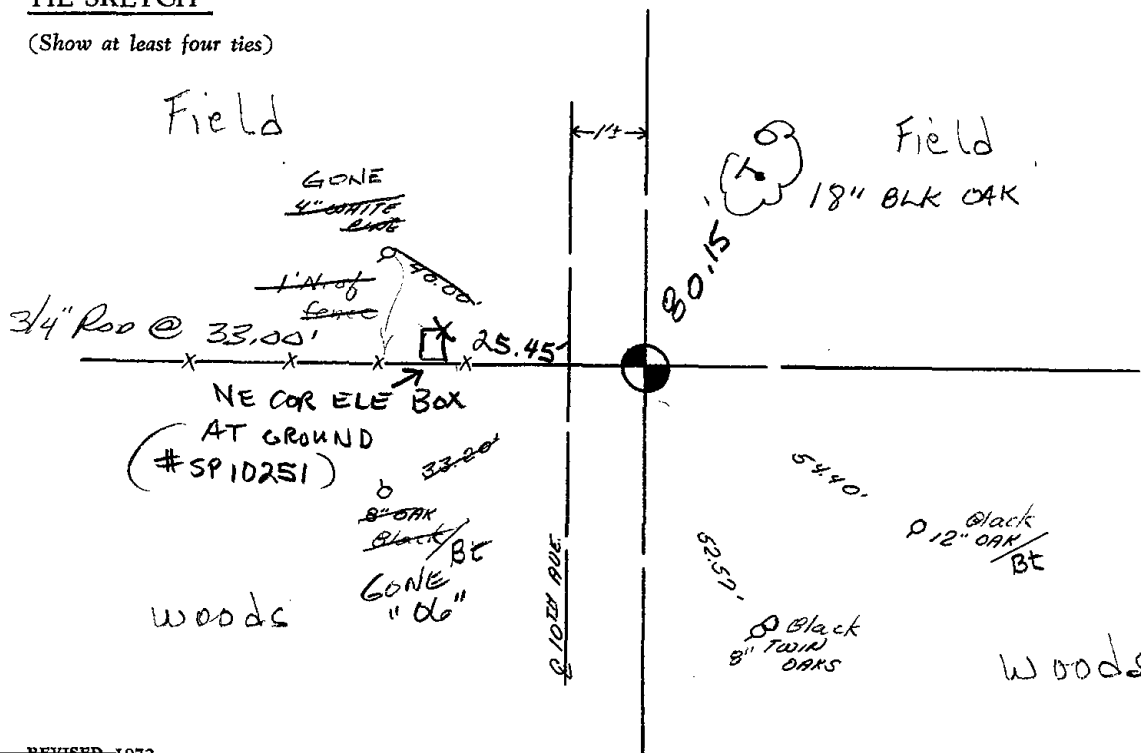 TIE SKETCH
(Show at least four ties)
Field
Field
1'±
GONE
4" WHITE
PINE
18" BLK OAK
40.00'
80.15'
1' N. of
fence
3/4" ROD @ 33.00'
25.45'
NE COR ELE BOX
AT GROUND
(#SP10251)
33.20'
8" OAK
Black/Bt
GONE
"06"
54.40'
Black
12" OAK/Bt
52.57'
Black
8" TWIN
OAKS
℄ 10TH AVE.
Woods
Woods
REVISED 1973